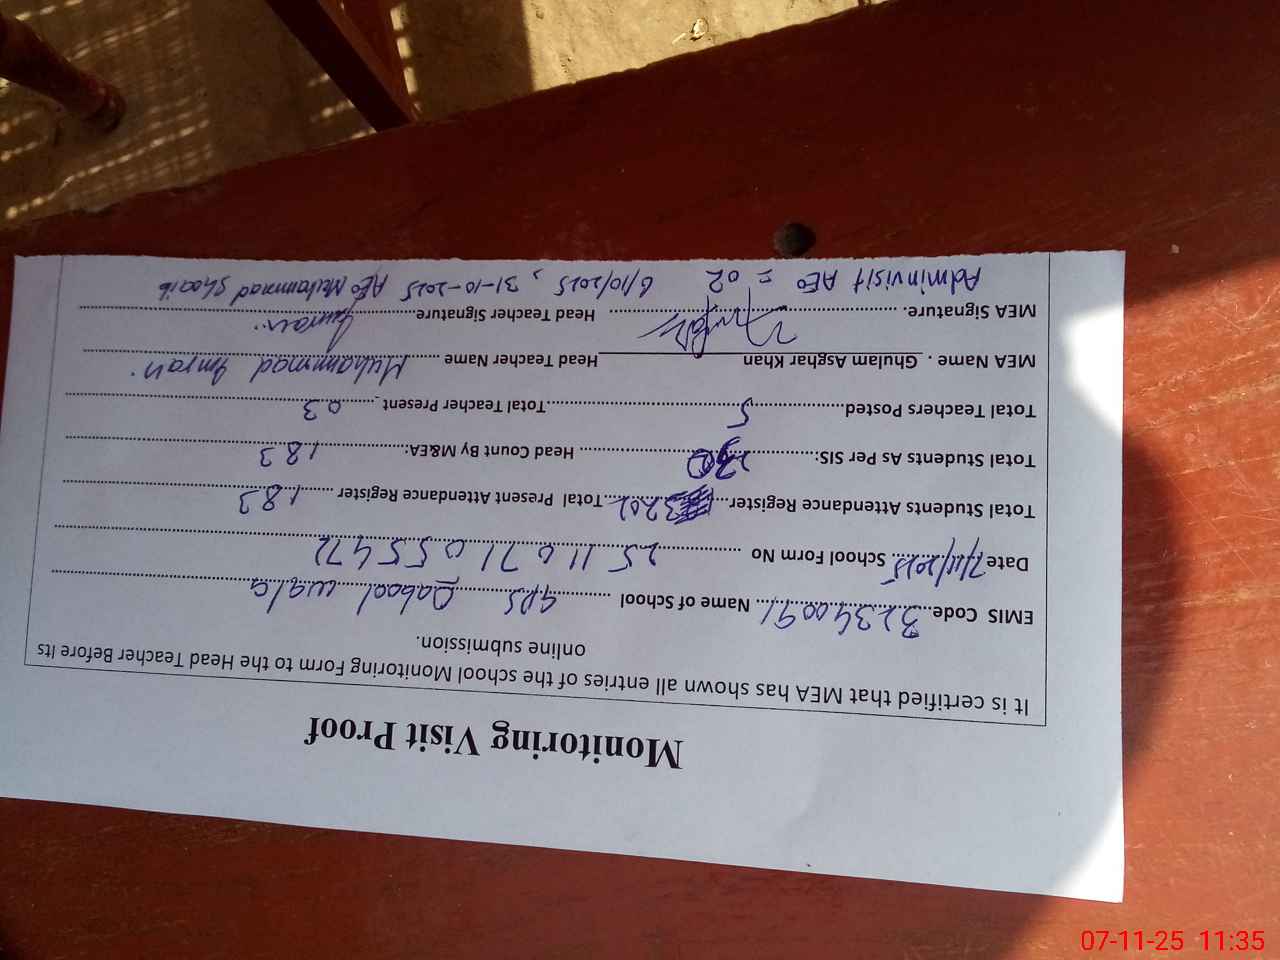 Monitoring Visit Proof
It is certified that MEA has shown all entries of the school Monitoring Form to the Head Teacher Before Its
online submission.
EMIS Code 32340091 Name of School GPS Pabool wala
Date 7/11/2025 School Form No 25110710 55472
Total Students Attendance Register 202 Total Present Attendance Register 183
Total Students As Per SIS: Head Count By M&EA: 183
Total Teachers Posted 5 Total Teacher Present 03
MEA Name . Ghulam Asghar Khan Head Teacher Name Muhammad Imran
MEA Signature. Head Teacher Signature Imran
Admin visit AEO = 02 6/10/2025 , 31-10-2025 AEO Muhammad Shoaib
07-11-25 11:35